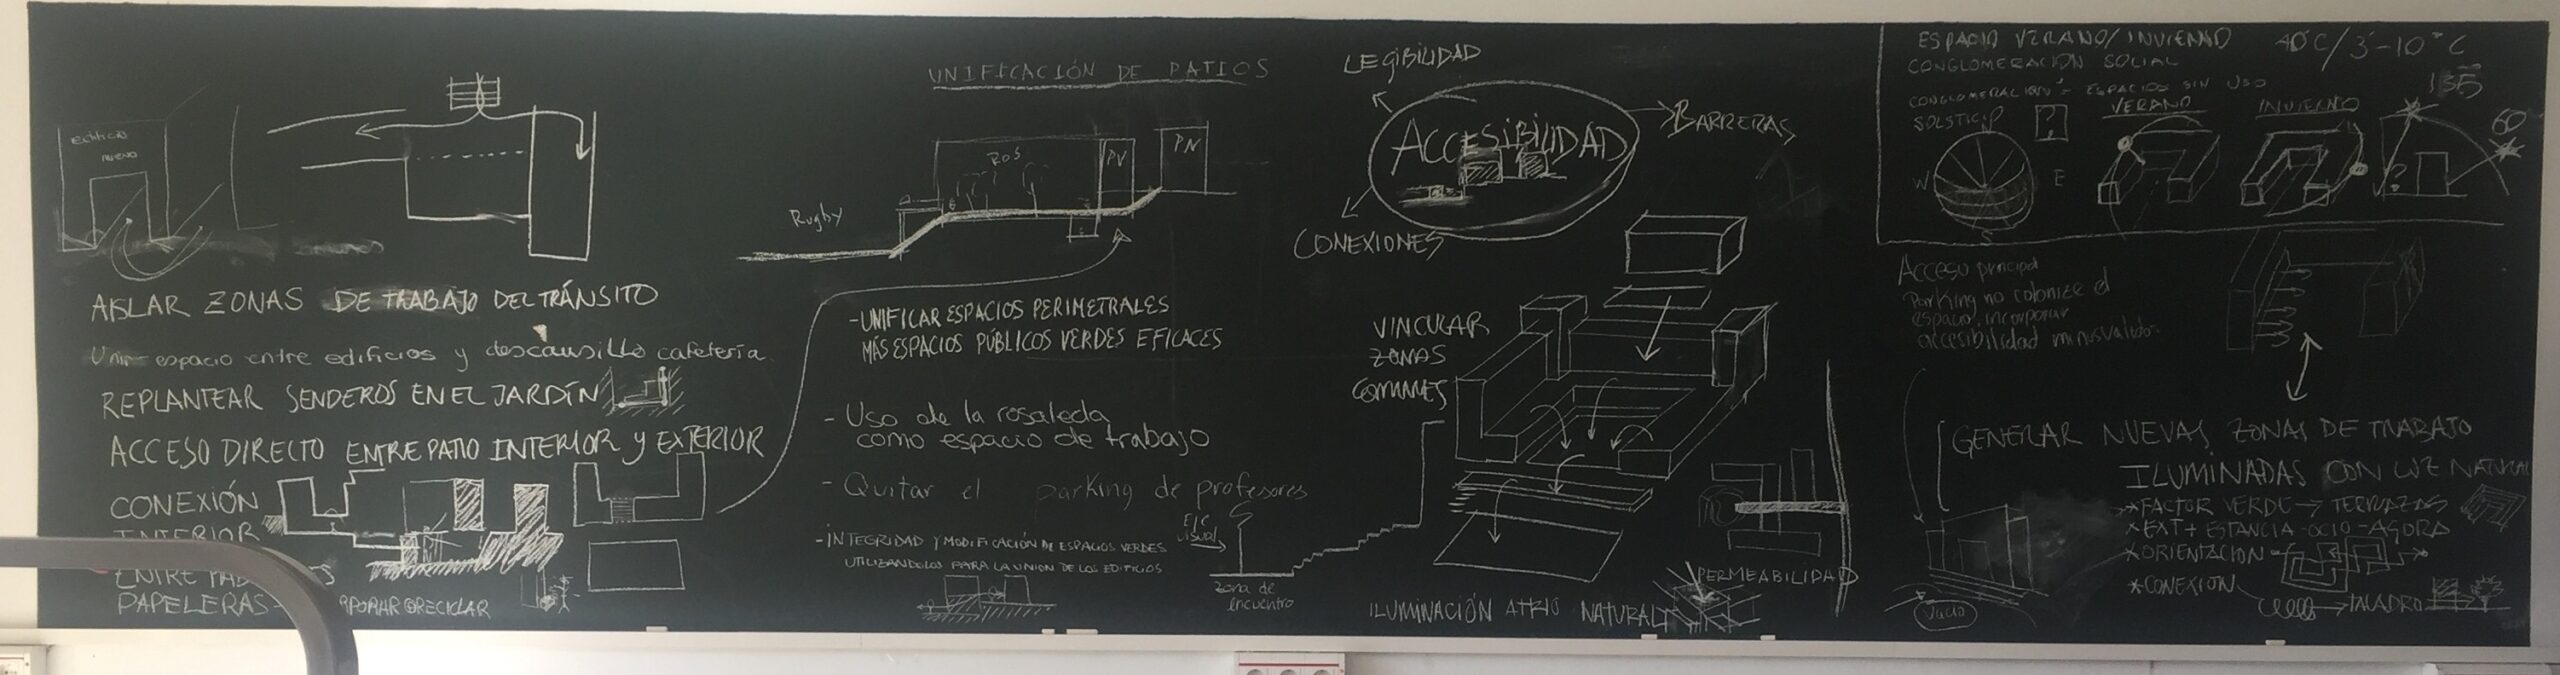 EDIFICIO
NUEVO
AISLAR ZONAS DE TRABAJO DEL TRÁNSITO
Unir espacio entre edificios y descansillo cafetería.
REPLANTEAR SENDEROS EN EL JARDÍN
ACCESO DIRECTO ENTRE PATIO INTERIOR Y EXTERIOR
CONEXIÓN
INTERIOR
ENTRE
PAPELERAS
RECICLAR
UNIFICACIÓN DE PATIOS
ROS
PV
PN
Rugby
-UNIFICAR ESPACIOS PERIMETRALES
MÁS ESPACIOS PÚBLICOS VERDES EFICACES
- Uso de la rosaleda
como espacio de trabajo
- Quitar el parking de profesores
-INTEGRIDAD Y MODIFICACIÓN DE ESPACIOS VERDES
UTILIZANDOLOS PARA LA UNION DE LOS EDIFICIOS
EJE
VISUAL
Zona de
encuentro
LEGIBILIDAD
ACCESIBILIDAD
BARRERAS
CONEXIONES
VINCULAR
ZONAS
COMUNES
PERMEABILIDAD
ILUMINACIÓN ATRIO NATURAL
ESPACIO VERANO/INVIERNO 40°C/3-10°C
CONGLOMERACION SOCIAL
CONGLOMERACION = ESPACIOS SIN USO
SOLSTICIO
N
?
VERANO
INVIERNO
135
60
W
E
S
?
Acceso principal
Parking no colonize el
espacio, incorporar
accesibilidad minusvalidos.
GENERAR NUEVAS ZONAS DE TRABAJO
ILUMINADAS CON LUZ NATURAL
*FACTOR VERDE → TERRAZAS
*EXT + ESTANCIA-OCIO-AGORA
*ORIENTACION
*CONEXION
→ TALADRO
Vacio